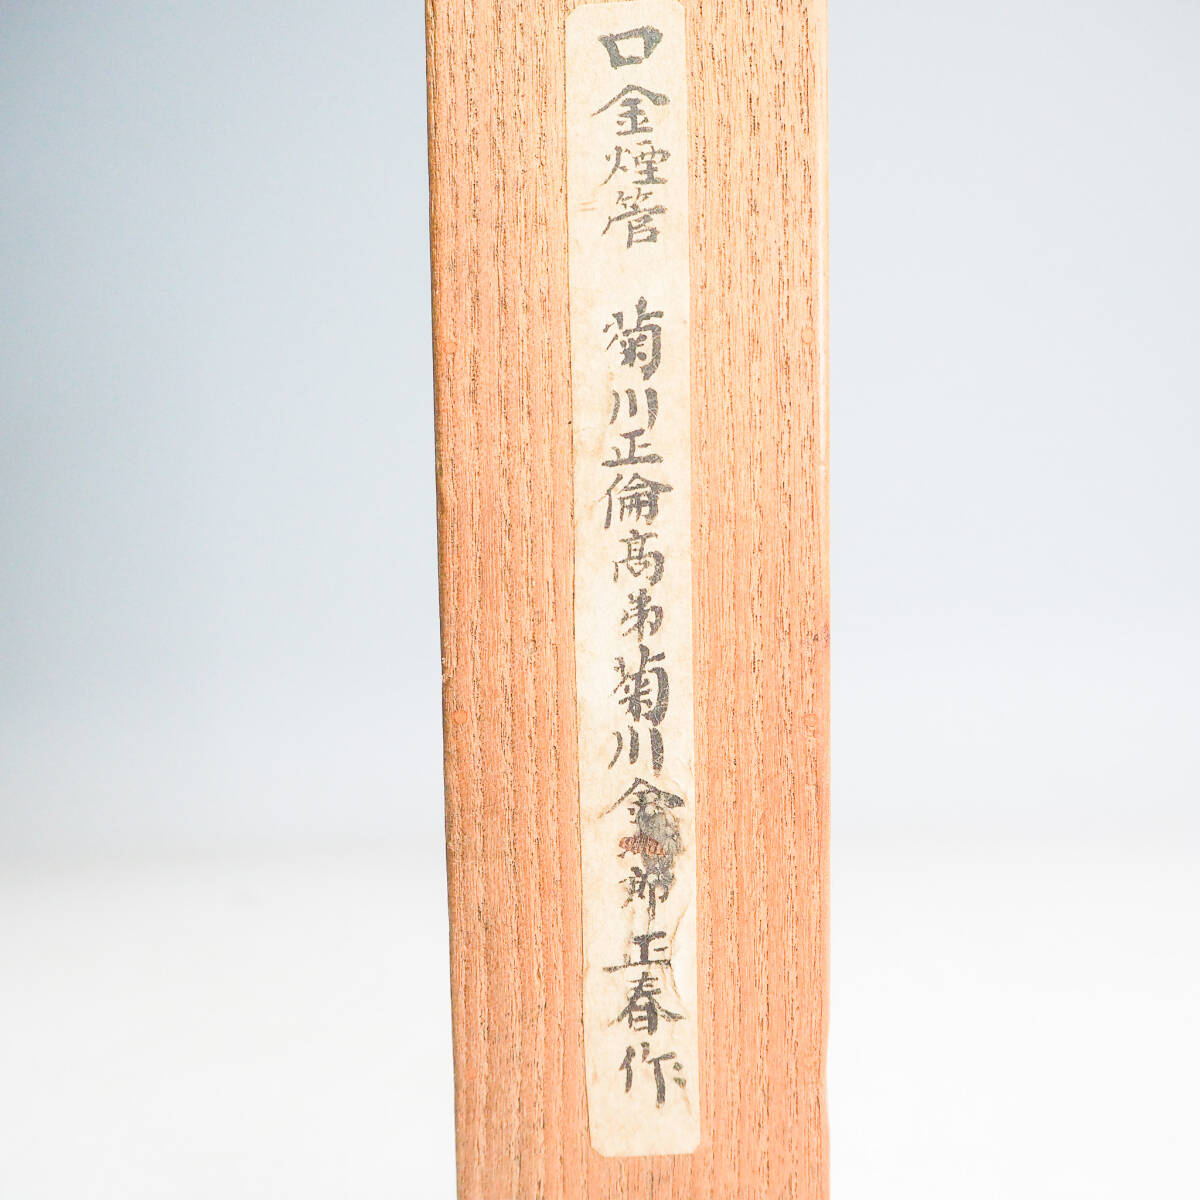 口金煙管　菊川正倫高弟菊川金郎正春作